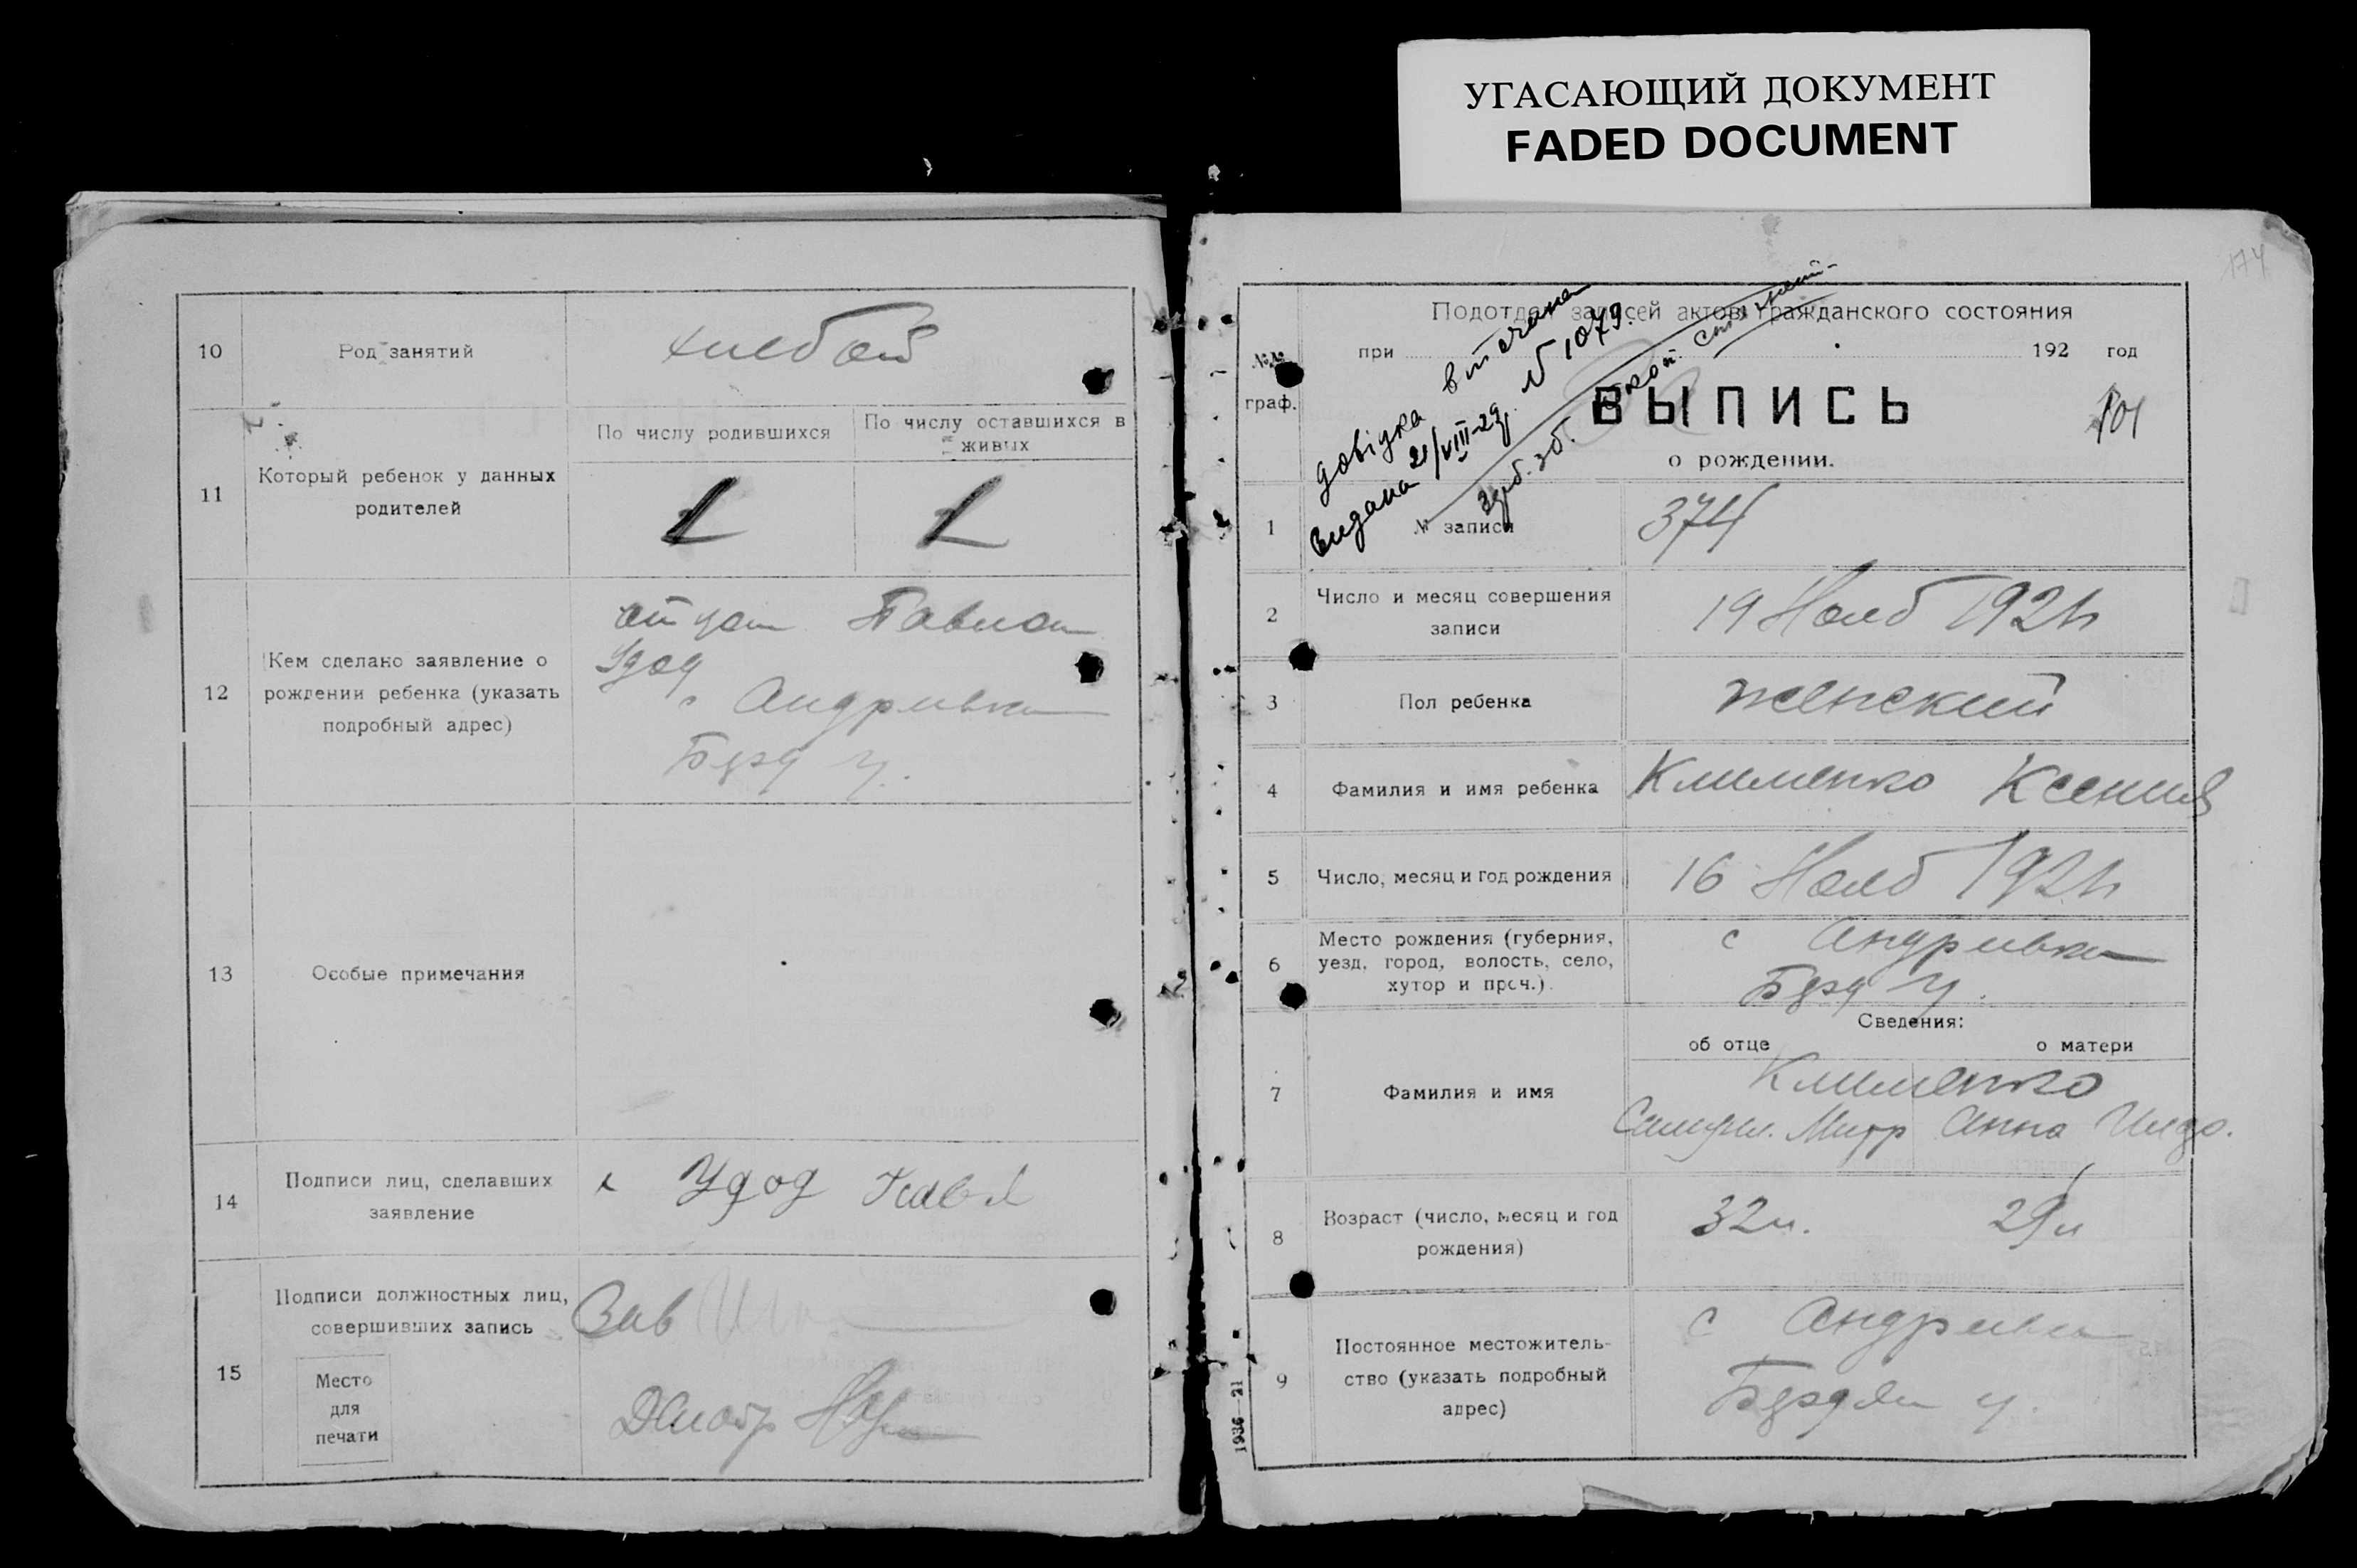 УГАСАЮЩИЙ ДОКУМЕНТ
FADED DOCUMENT
10
Род занятий
хлебоп
11
Который ребенок у данных
родителей
По числу родившихся
По числу оставшихся в
живых
1
1
12
Кем сделано заявление о
рождении ребенка (указать
подробный адрес)
Павлом
Удод
с Андривка
Бердян у.
13
Особые примечания
14
Подписи лиц, сделавших
заявление
Удод Павл
15
Подписи должностных лиц,
совершивших запись
Место
для
печати
Зав
174
Подотдел записей актов гражданского состояния
при 192 год
№№
граф.
ВЫПИСЬ
о рождении.
101
довідка
видана 21/VIII-29р. № 1079.
1
№ записи
374
2
Число и месяц совершения
записи
19 Нояб 192
3
Пол ребенка
женский
4
Фамилия и имя ребенка
Клименко Ксения
5
Число, месяц и год рождения
16 Нояб 192
6
Место рождения (губерния,
уезд, город, волость, село,
хутор и проч.).
с Андривка
у.
Сведения:
об отце
о матери
7
Фамилия и имя
Клименко
Анна
8
Возраст (число, месяц и год
рождения)
32л.
29л
9
Постоянное местожитель-
ство (указать подробный
адрес)
с Андривка
у.
1936—21